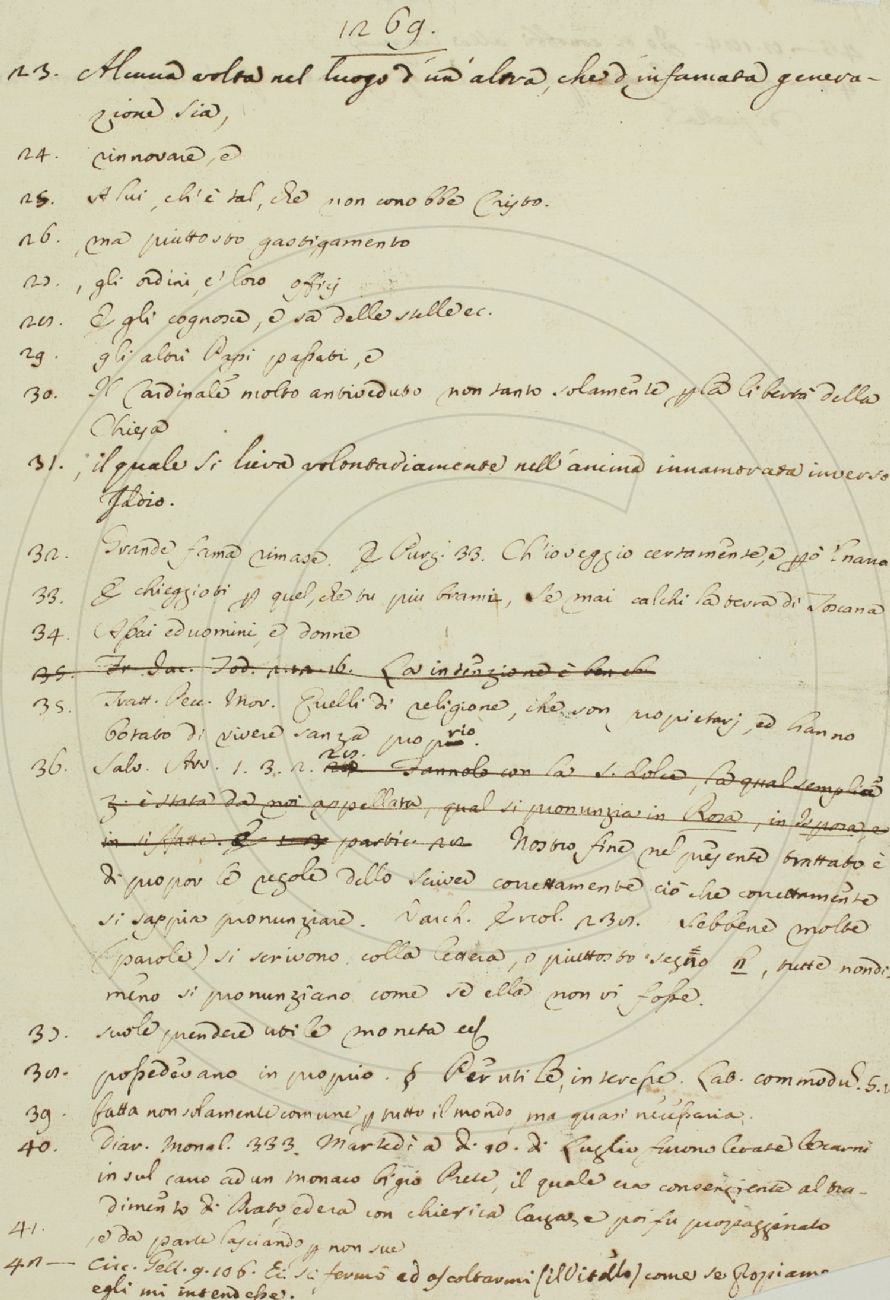 1269.
23. Alcuna volta nel luogo d'un' altra, che d'infamata genera-
zione sia,
24. rinnovare, e
25. A lui, ch'è tal, che non conobbe Cristo.
26. , ma piuttosto gastigamento
27. , gli ordini, e' loro officj
28. E gli cognosce, e sa delle stelle ec.
29. gli altri Papi passati, e
30. Il Cardinale molto antiveduto non tanto solamente p la libertà della
Chiesa
31. , il quale si lieva volontariamente nell'anima innamorata inverso
Iddio.
32. Grande fama rimase. E Purg. 33. Ch'io veggio certamente, e pò 'l narro
33. E chieggioti p quel, che tu più brami, Se mai calchi la terra di Toscana
34. Assai ed uomini, e donne
35. Fr. Iac. Tod. 2. 16. La intenzione è ben
35. Tratt. Pecc. Mor. Quelli di religione, che son propietarj, ed hanno
botato di vivere sanza proprio.
36. Salv. Avv. 1. 3. 2. 28. Fannolo con la S. dolce, la qual semplice
z. è stata da noi appellata, qual si pronunzia in Rosa, in sposa, e
in partic. 22 Nostro fine nel presente trattato è
di propor le regole dello scriver correttamente ciò che correttamente
si sappia pronunziare. Varch. Ercol. 238. Sebbene molte
(parole) si scrivono colla lettera, o piuttosto segno h, tutte nondi-
meno si pronunziano come se ella non vi fosse.
37. suole prendere utile moneta ec
38. possedevano in proprio. § Per utile, interesse. Lat. commodu. S. v
39. fatta non solamente comune p tutto il mondo, ma quasi necessaria.
40. Diar. Monal. 333. Martedì a dì 10. di Luglio furono levate le carni
in sul carro ad un monaco bigio Prete, il quale era consenziente al tra-
dimento di Prato, ed era con chierica larga, e poi fu propagginato
41. , e da parte lasciando p non sue
42 — Circ. Gell. 9. 106. Ei si fermò ad ascoltarmi (il Vitello) come se
egli mi intendesse.